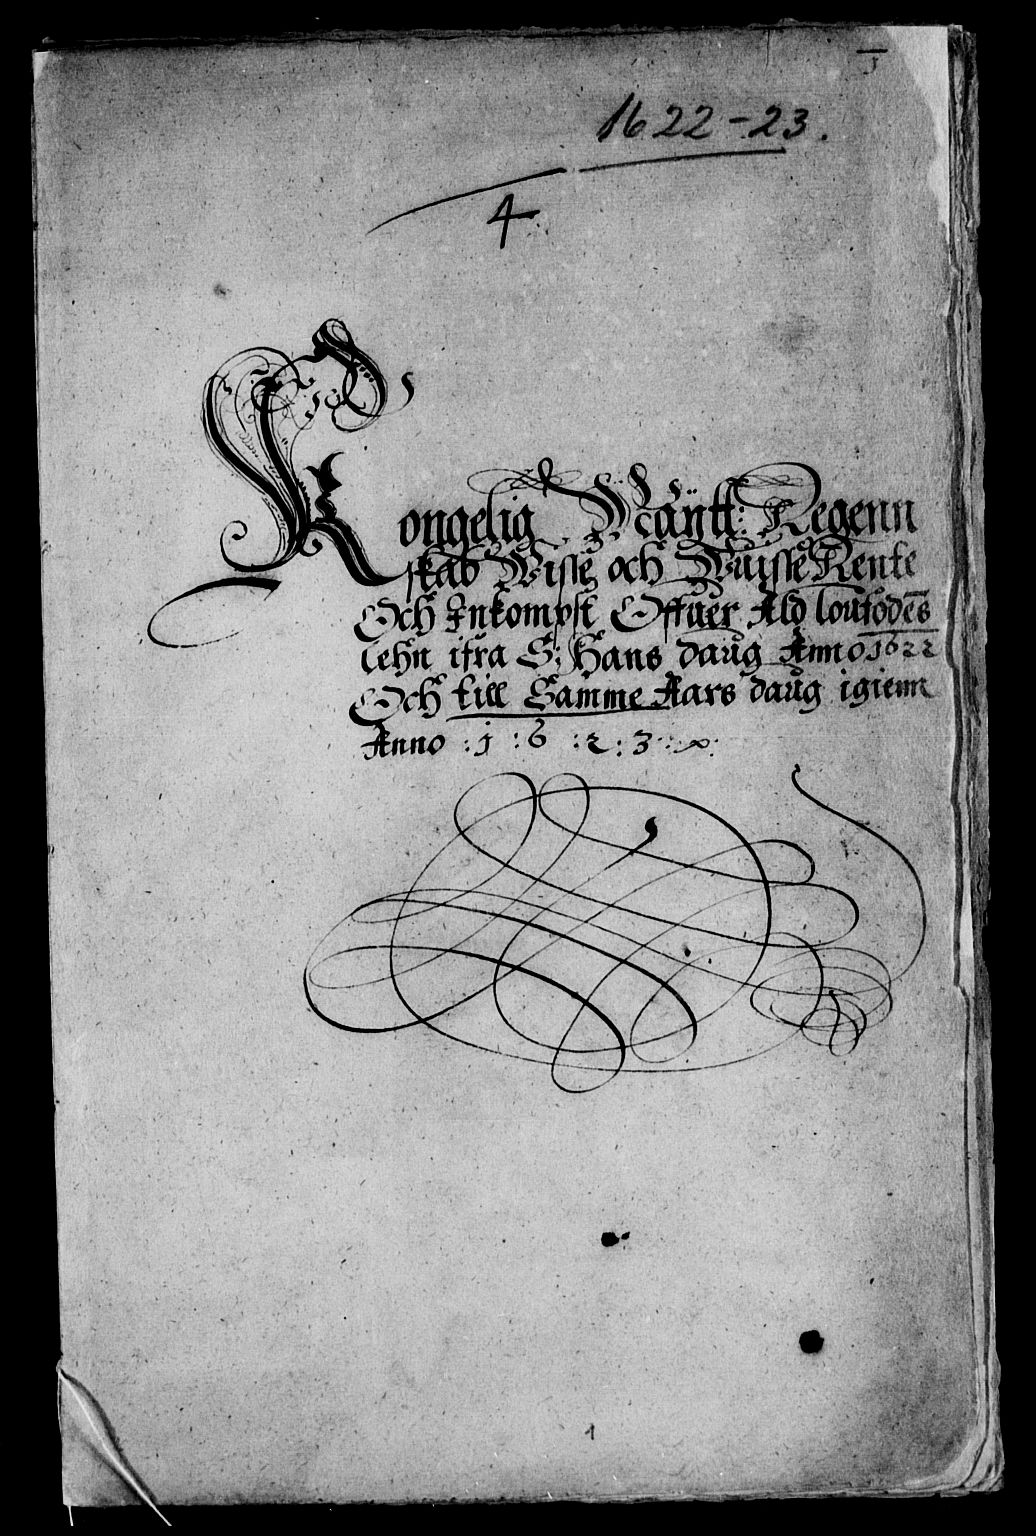 1
1622-23.
4
Kongelig Maÿtt: Regenn
skab Wisse och Vuisse Rente
Och Inkompst Offuer Ald loufodens
lehn ifra S: Hans daug Anno 1622
Och till Samme Aars daug igienn
Anno : 1 : 6 : 2 : 3 :
1